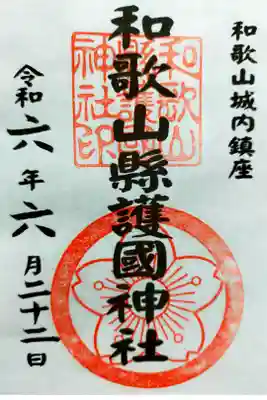 和歌山城内鎮座
和歌山縣護國神社
和歌山
縣護國
神社印
令和六年六月二十二日